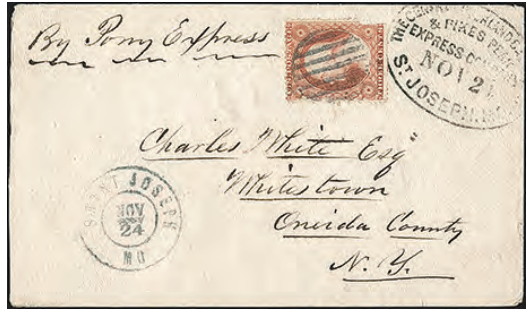 By Pony Express
& PIKES PEAK
EXPRESS COMPANY
NOV 21
ST JOSEPH, MO.
Charles White Esq
Whitestown
Oneida County
N. Y.
SAINT JOSEPH
NOV
24
MO